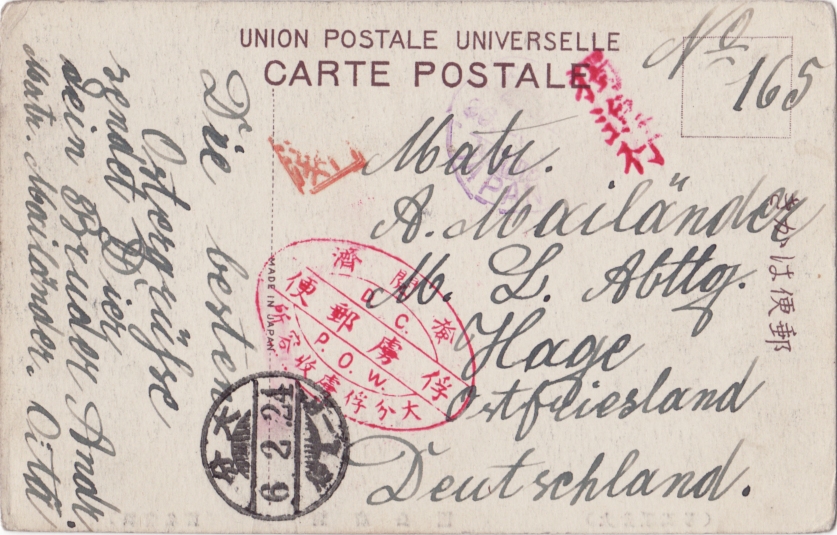 UNION POSTALE UNIVERSELLE
CARTE POSTALE
No
165
Matr.
A. Mailänder
M. L. Abttlg.
Hage
Ostfriesland
Deutschland.
Die besten
Ostergrüße
sendet Dier
dein Bruder Andr.
Matr. Mailänder. Oita
きかは便郵
MADE IN JAPAN
檢閱濟
D. C.
俘虜郵便
P. O. W.
大分俘虜收容所
大分
6.2.24